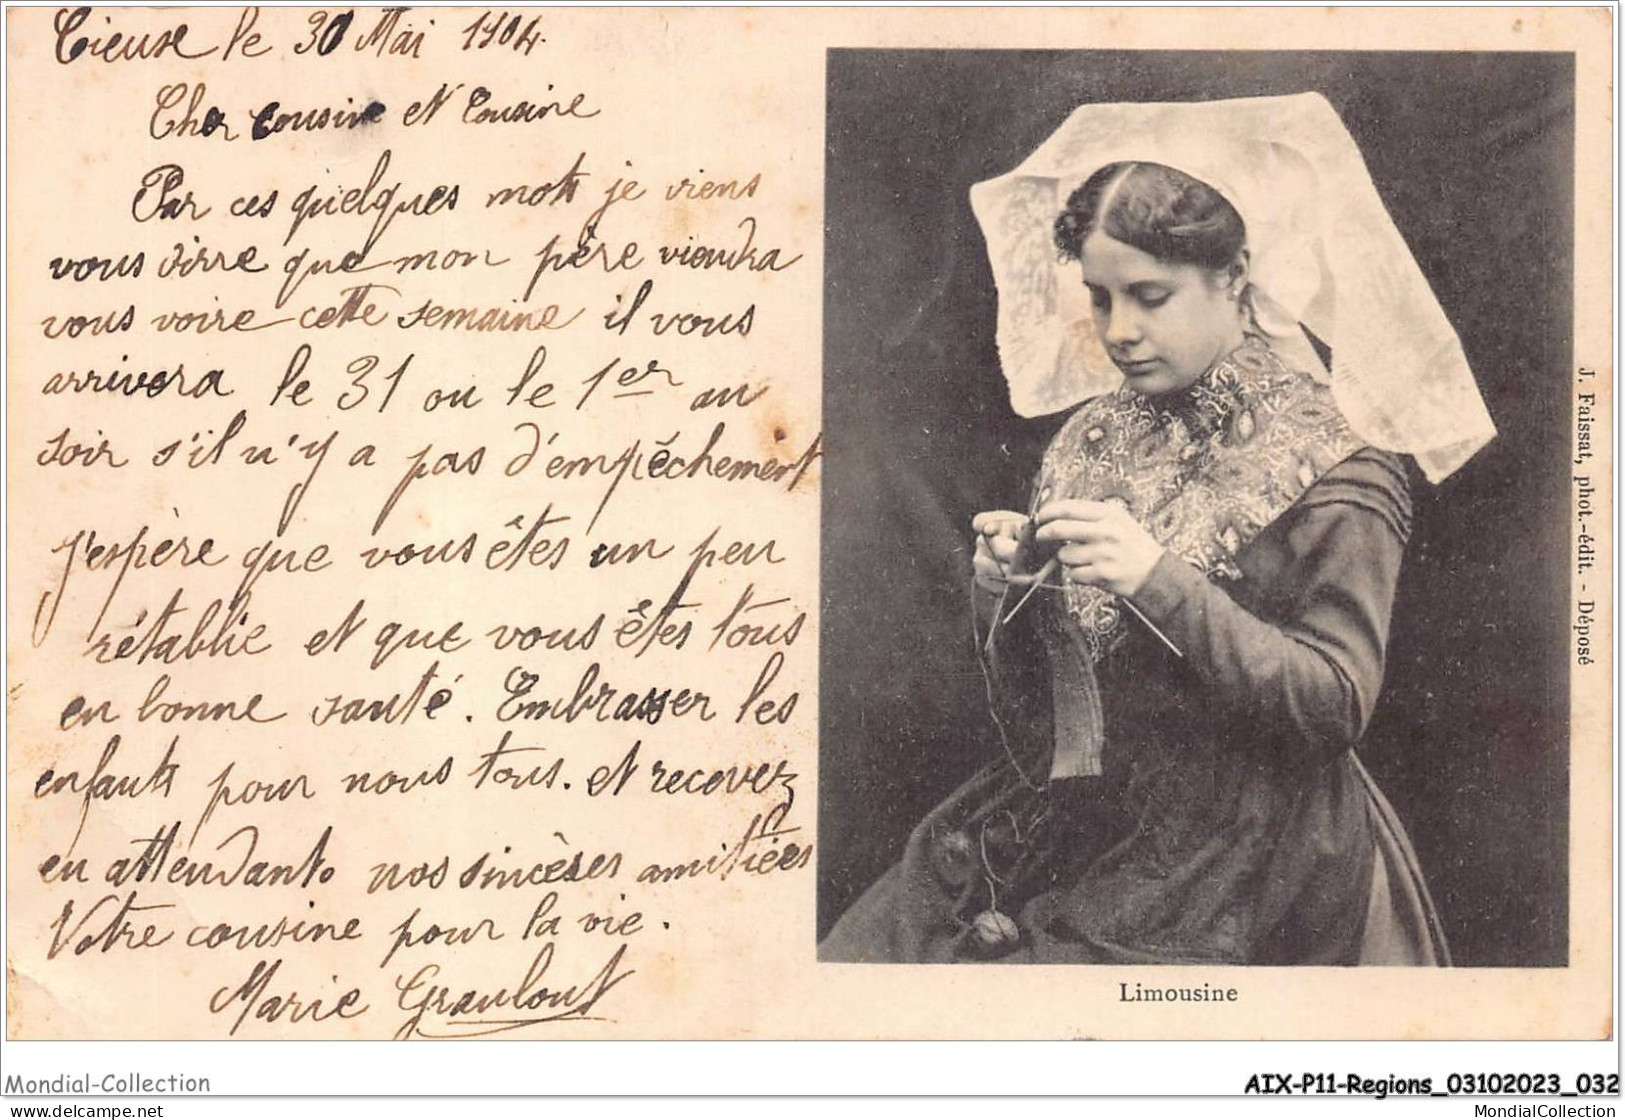 Cieuse le 30 Mai 1904.
Cher cousine et Cousine
Par ces quielques mots je viens
vous dirre que mon père viendra
vous voire cette semaine il vous
arrivera le 31 ou le 1er au
soir s'il n'y a pas d'empêchement
j'espère que vous êtes un peu
rétablie et que vous êtes tous
en bonne santé. Embrasser les
enfants pour nous tous. et recevez
en attendant. nos sincères amitiées
Votre cousine pour la vie.
Marie Graulout
Limousine
J. Faissat, phot.-édit. - Déposé
Mondial-Collection
AIX-P11-Regions_03102023_032
delcampe.net
MondialCollection